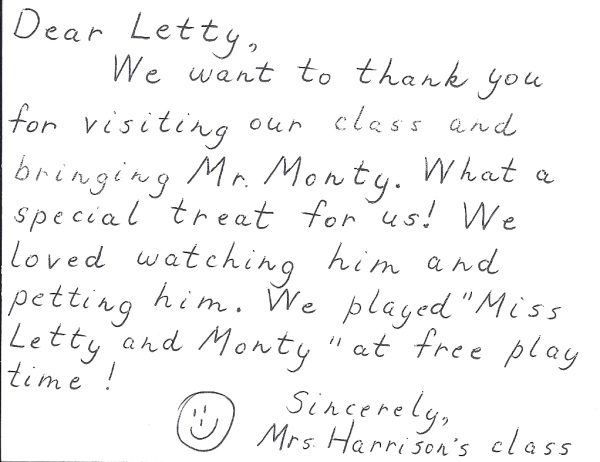 Dear Letty,
We want to thank you
for visiting our class and
bringing Mr. Monty. What a
special treat for us! We
loved watching him and
petting him. We played "Miss
Letty and Monty" at free play
time!
Sincerely,
Mrs. Harrison's class